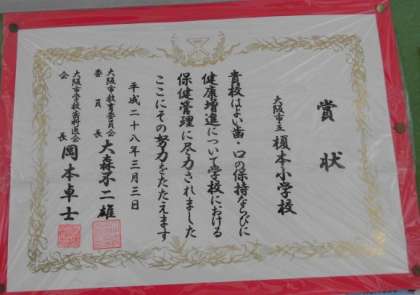 賞状
大阪市立 榎本小学校
貴校はよい歯・口の保持ならびに
健康増進について学校における
保健管理に尽力されました
ここにその努力をたたえます
平成二十八年三月三日
大阪市教育委員会
委員長 大森不二雄
大阪市学校歯科医会
会長 岡本卓士